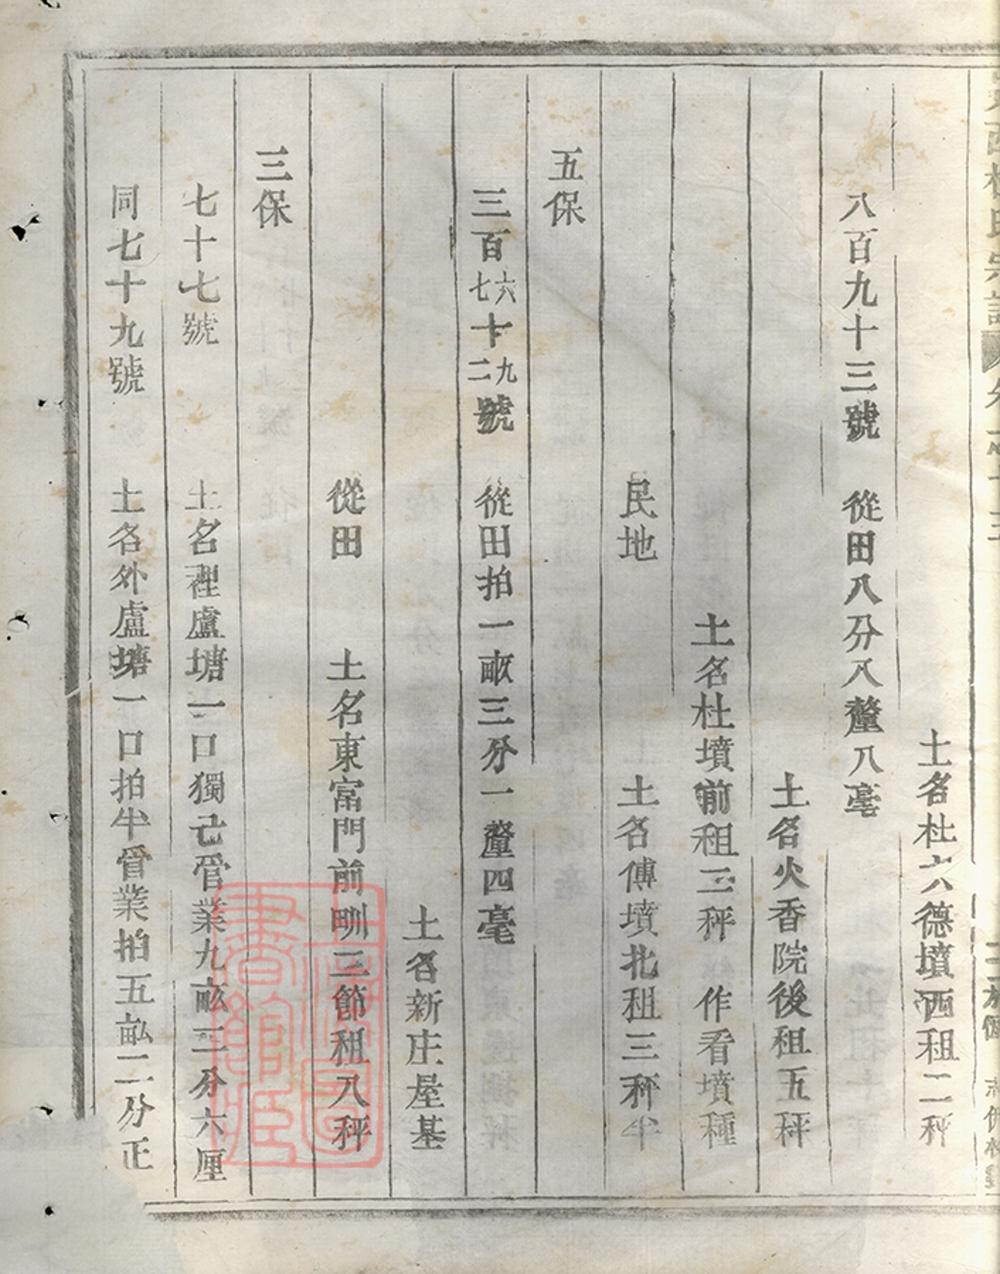 土名杜六德墳西租二秤
八百九十三號 從田八分八釐八毫
土名火香院後租五秤
土名杜墳前租三秤 作看墳種
民地 土名傅墳北租三秤半
五保
三百六七十九二號 從田拍一畝三分一釐四毫
土名新庄屋基
從田 土名東富門前畔三節租八秤
三保
七十七號 土名裡盧塘一口獨己管業九畝二分六厘
同七十九號 土名外盧塘一口拍半管業拍五畝二分正